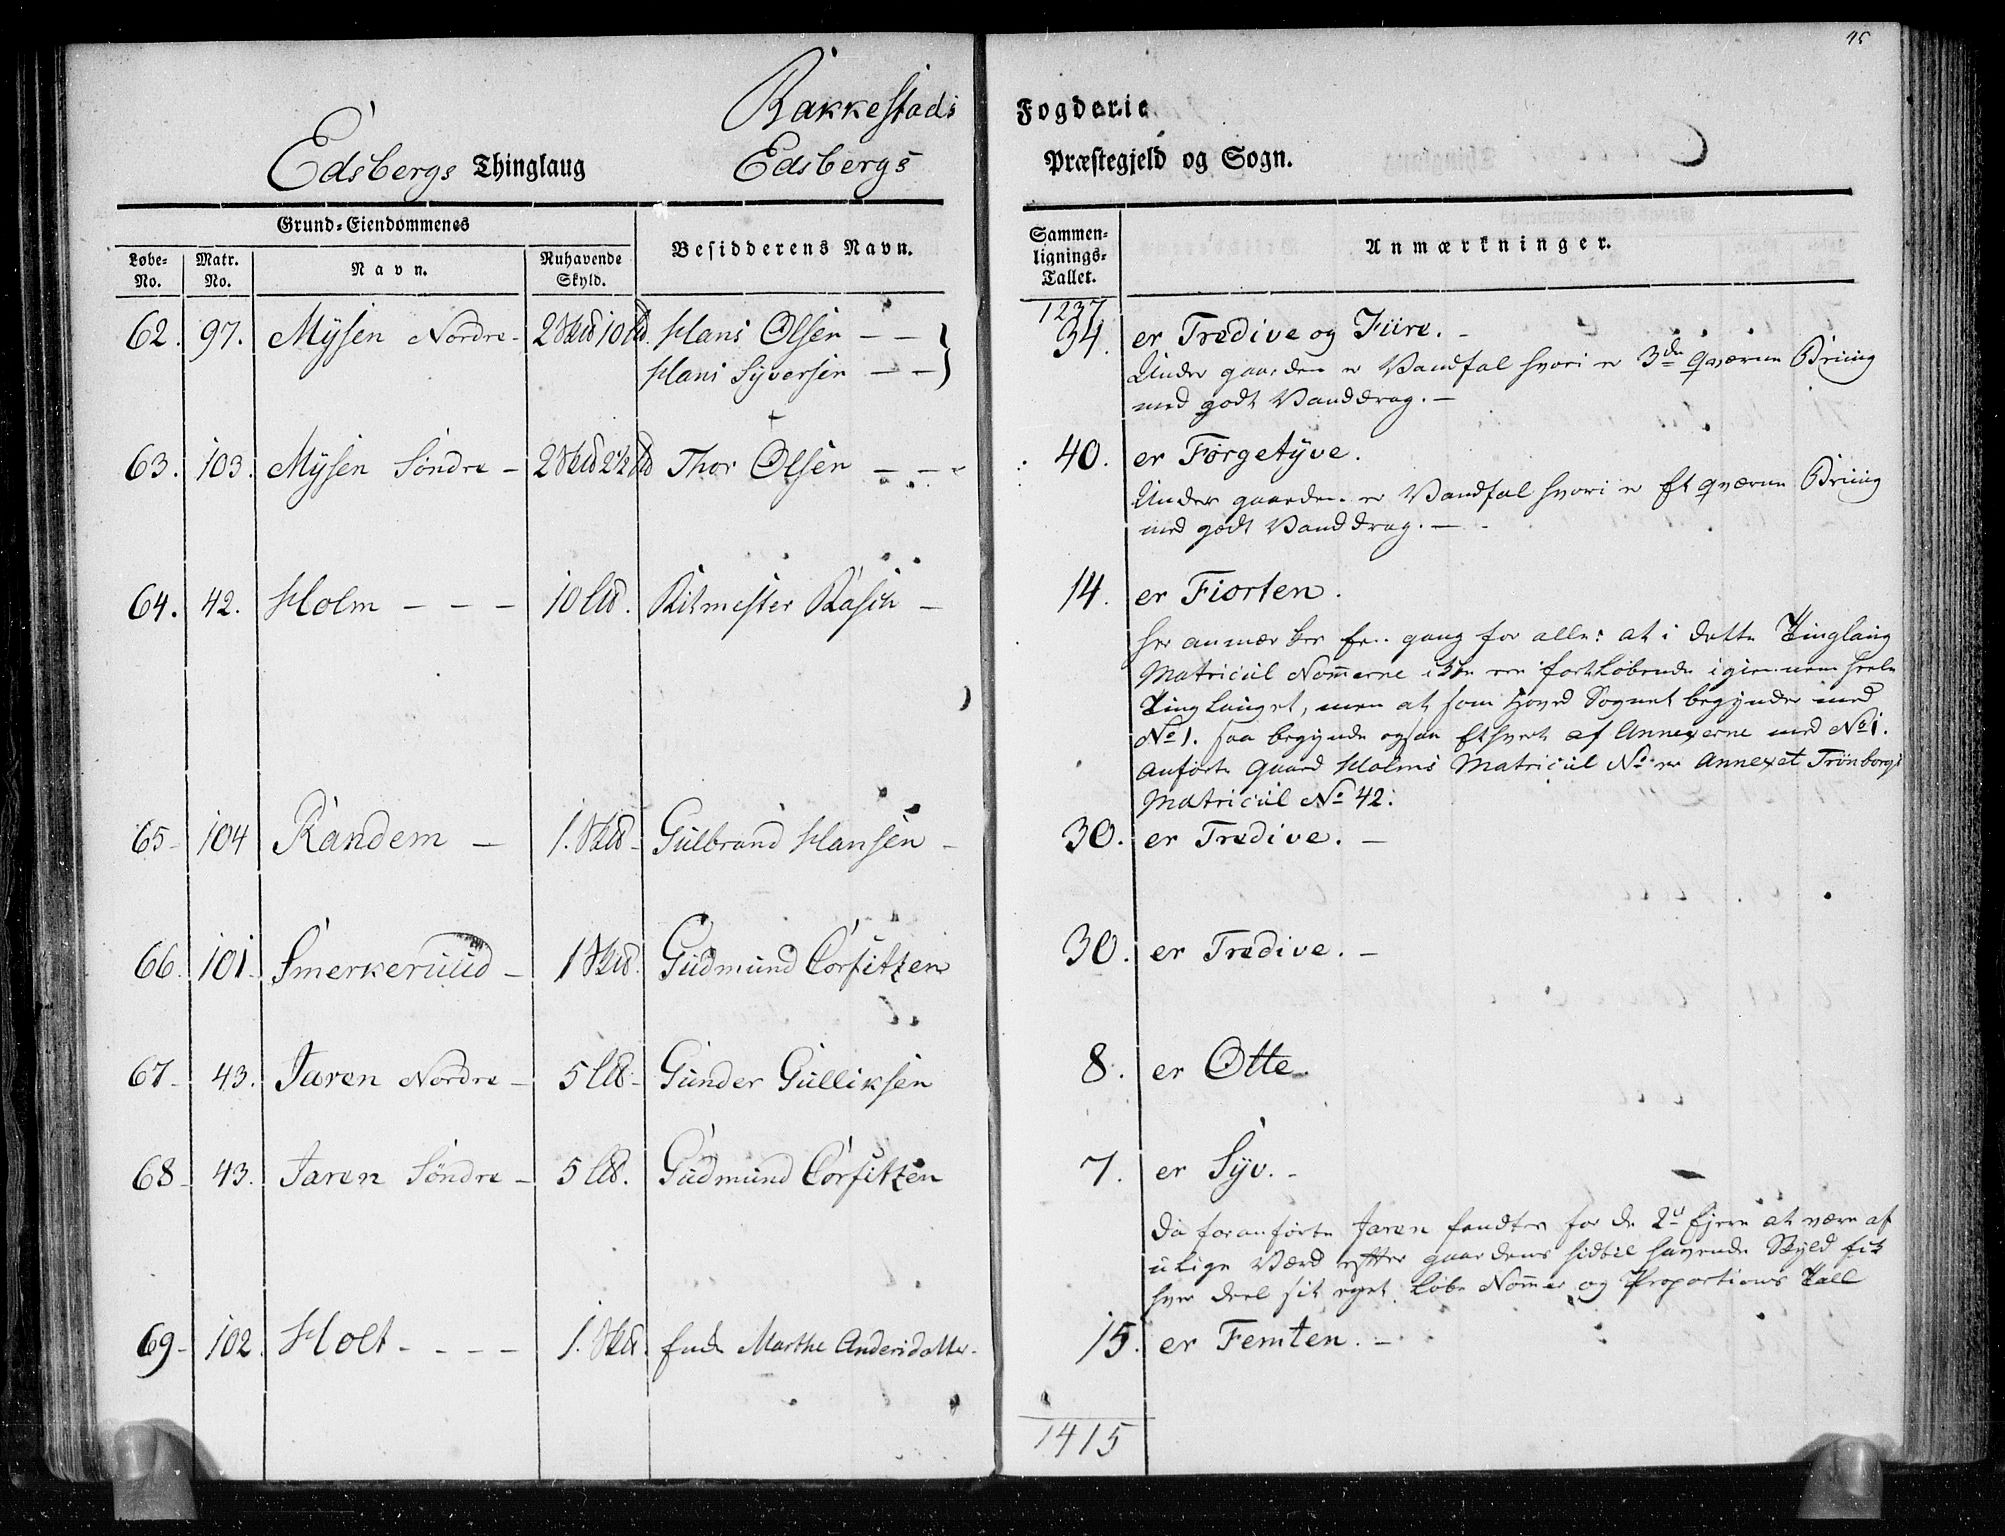 95
Rakkestads Fogderie
Edsbergs Thinglaug Edsbergs Præstegjeld og Sogn.
Grund-Eiendommenes
Løbe-No. Matr. No. Navn. Nuhavende Skyld. Besidderens Navn. Sammenlignings-Tallet. Anmærkninger.
1237
62. 97. Mÿsen Nordre - 2 Skd 10 Ld. Hans Olsen — — 34. er Tredive og Fiire. -
Hans Syversen — — Under gaarden er Vandfal hvori er 3de Qværne Bruug
med godt Vanddrag. —
63. 103. Mÿsen Söndre - 2 Skd 2½ Ld Thor Olsen — - - 40. er Förgetÿve.
Under gaarden er Vandfal hvori er Et qværne Bruug
med godt Vanddrag. —
64. 42. Holm - - - 10 Ld. Ritmester Rasch - 14. er Fiorten.
her anmærkes een gang for alle: at i dette Tinglaug
Matricul Nommerne ikke ere fortløbende igiennem heele
Tinglauget, men at som Hoved Sognet begynder med
No 1. saa begynde ogsaa Ethvert af Annexerne med No 1.
Anførte Gaard Holms Matricul No er Annexet Trönborgs
Matricul No 42.
65- 104 Randem - 1. Skd - Gulbrand Hansen - 30. er Tredive. -
66. 101. Smerkeruud - 1 Skd. Gudmund Corfitzen 30. er Tredive. -
67- 43. Jaren Nordre - 5 Ld - Gunder Gulliksen 8. er Otte.
68- 43. Jaren Söndre - 5 Ld. Gudmund Corfitzen 7. er Syv. -
Da foranførte Jaren fandtes for de 2de Ejere at være af
ulige Værd efter gaardens hidtil havende Skyld fik
hver deel sit eget Løbe Nommer og Proportions Tall
69- 102. Holt - - - - 1. Skd. Enke Marthe Andersdatter - 15. er Femten. -
1415